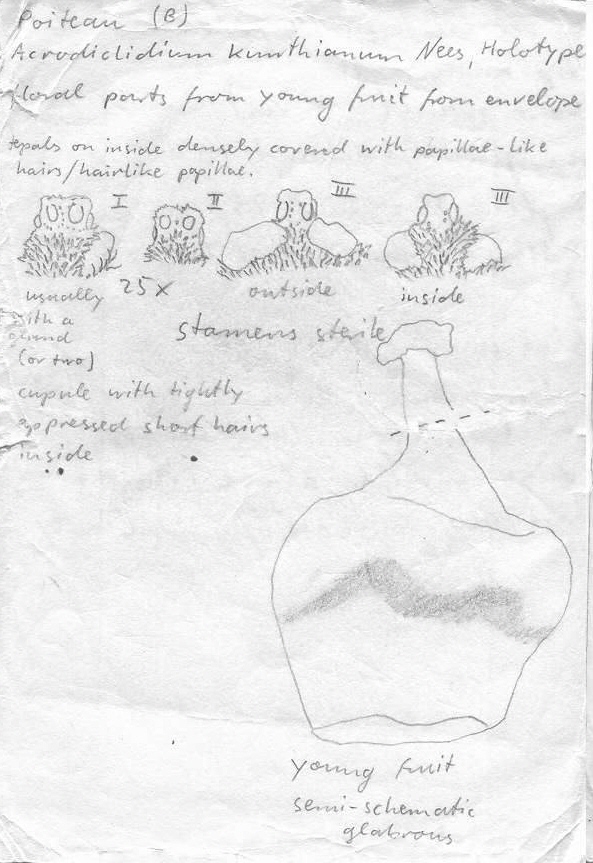 Poiteau (B)
Acrodiclidium kunthianum Nees, Holotype
floral parts from young fruit from envelope
tepals on inside densely covered with papillae-like
hairs/hairlike papillae.
I II III III
usually 25x outside inside
with a
gland
(or two)
stamens sterile
cupule with tightly
appressed short hairs
inside
young fruit
semi-schematic
glabrous